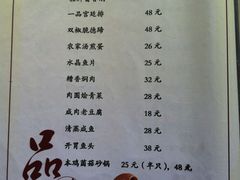 一品宫廷排 48元
双椒脆德蹄 48元
农家汤煎蛋 26元
水晶鱼片 25元
糟香焖肉 32元
肉圆烩青菜 28元
咸肉老豆腐 18元
清蒸咸鱼 28元
开胃鱼头 38元
本鸡菌菇砂锅 25元（半只），48元
品